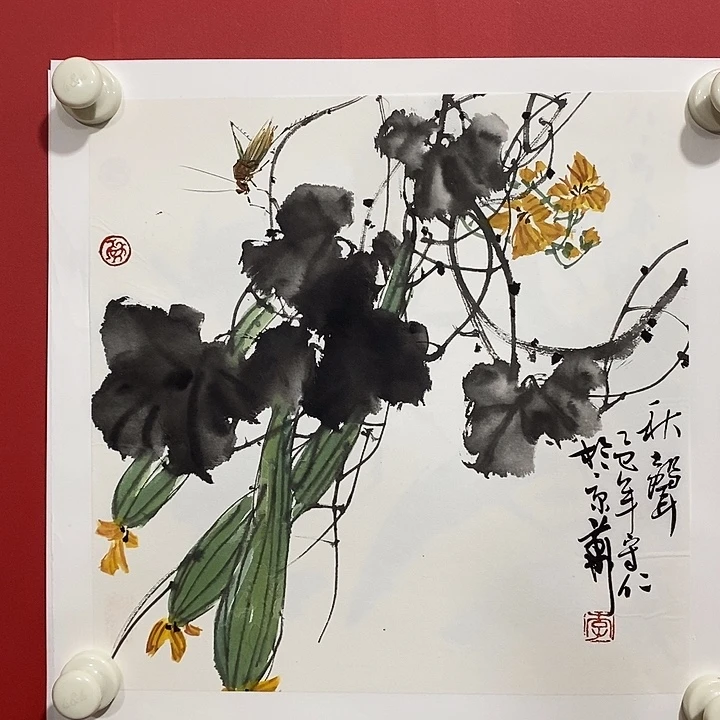 秋聲
乙巳年守仁
於京華